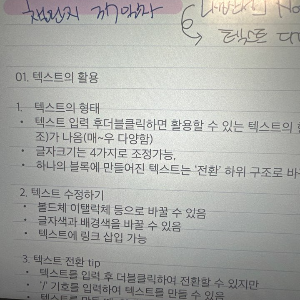 챕턴지
텍스트
01. 텍스트의 활용
1. 텍스트의 형태
• 텍스트 입력 후더블클릭하면 활용할 수 있는 텍스트의
조)가 나옴(매~우 다양함)
• 글자크기는 4가지로 조정가능,
• 하나의 블록에 만들어진 텍스트는 '전환' 하위 구조로 바
2. 텍스트 수정하기
• 볼드체 이탤릭체 등으로 바꿀 수 있음
• 글자색과 배경색을 바꿀 수 있음
• 텍스트에 링크 삽입 가능
3. 텍스트 전환 tip
• 텍스트를 입력 후 더블클릭하여 전환할 수 있지만
• '/' 기호를 입력하여 텍스트를 만들 수 있음